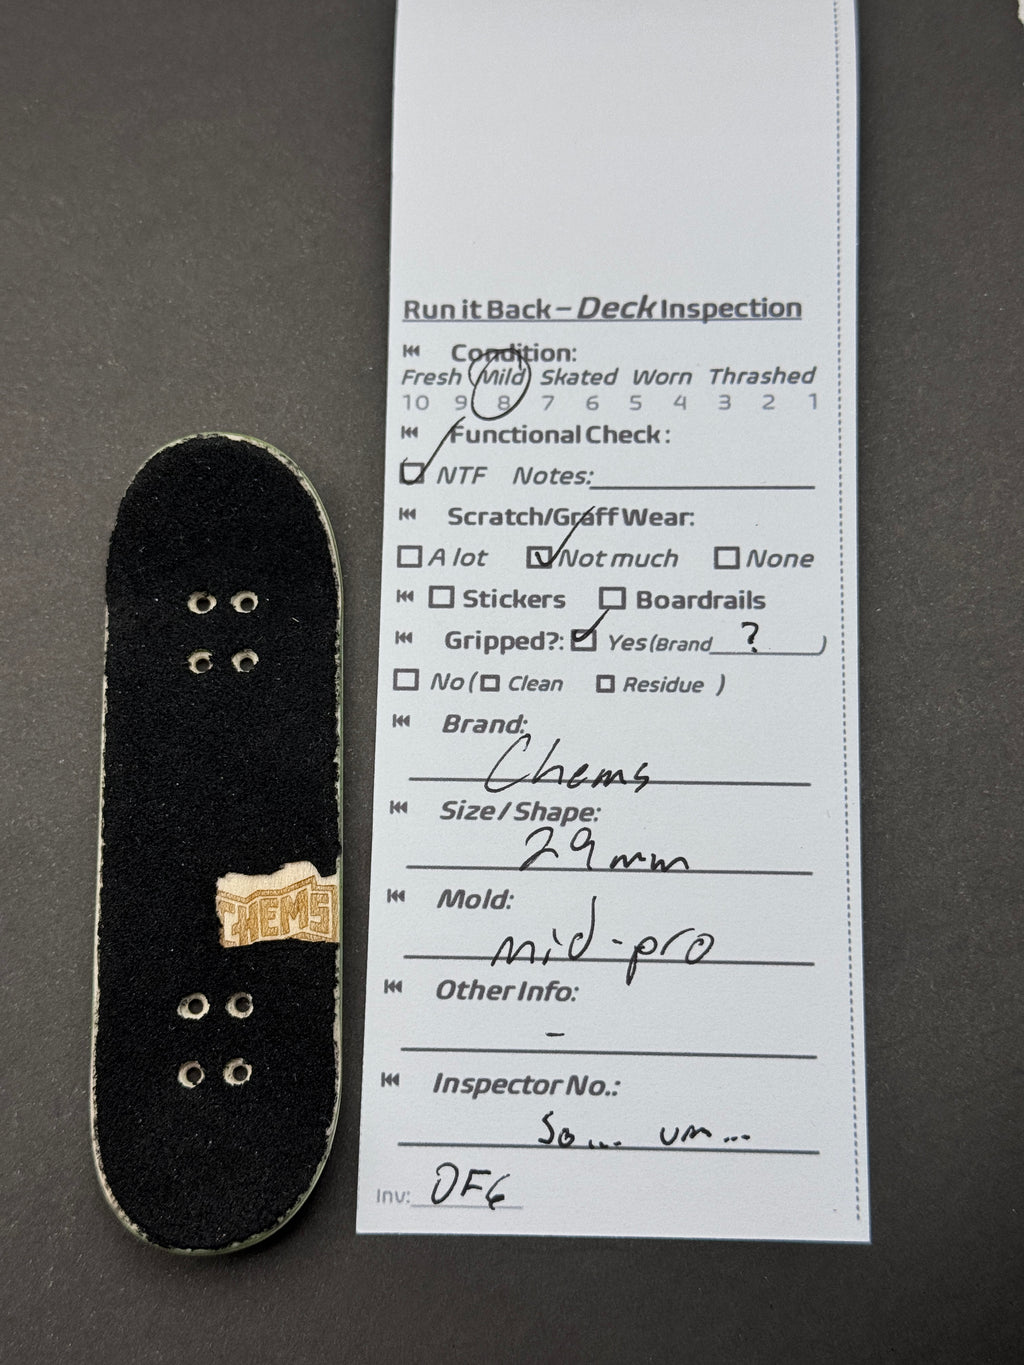 Run it Back – Deck Inspection
Condition:
Fresh Mild Skated Worn Thrashed
10 9 8 7 6 5 4 3 2 1
Functional Check:
NTF Notes:
Scratch/Graff Wear:
A lot Not much None
Stickers Boardrails
Gripped?: Yes (Brand ? )
No ( Clean Residue )
Brand:
Chems
Size/Shape:
29mm
Mold:
mid-pro
Other Info:
-
Inspector No.:
So... um...
Inv: OF6
CHEMS